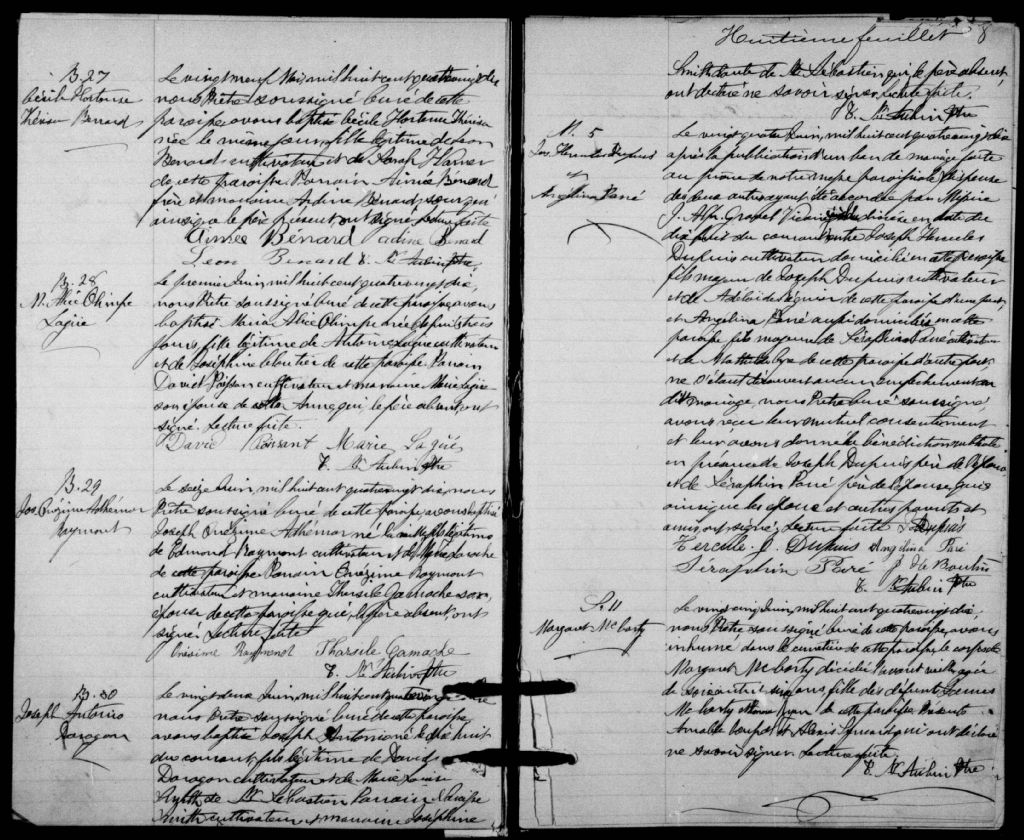 B. 27
Cécile Hortense
Bénard
Le vingtneuf Mai mil huit cent quatrevingt dix
nous Prêtre soussigné Curé de cette
paroisse, avons baptisé Cécile Hortense
née le même jour, fille légitime de Léon
Bénard cultivateur et de
de cette paroisse. Parrain Aimée Bénard
frère et marraine Bénard soeur
le père présent ont signé. Lecture faite
Aimée Bénard Bénard
Léon Bénard T. St Aubin Ptre
B. 28
M. Alice Olimpe
Laguë
Le premier Juin, mil huit cent quatrevingt dix,
nous Prêtre soussigné Curé de cette paroisse avons
baptisé Maria Alice Olimpe née depuis trois
jours, fille légitime de Antoine Laguë cultivateur
et de Joséphine Cloutier de cette paroisse. Parrain
David cultivateur et marraine Marie Laguë
son épouse de qui, le père absent, ont
signé. Lecture faite.
David Marie Laguë
T. St Aubin Ptre
B. 29
Jos. Onézime Adhémar
Raymont
Le seize Juin, mil huit cent quatrevingt dix, nous
Prêtre soussigné Curé de cette paroisse avons baptisé
Joseph Onézime Adhémar né la veille, fils légitime
de Edmond Raymont cultivateur et de
de cette paroisse. Parrain Onézime Raymont
cultivateur et marraine Tharsile Gamache son
épouse de cette paroisse qui, le père absent, ont
signé. Lecture faite
Onésime Raymond Tharsile Gamache
T. St Aubin Ptre
B. 30
Joseph Antonio
Daragon
Le vingt deux Juin, mil huit cent quatrevingt dix
nous Prêtre soussigné Curé de cette paroisse
avons baptisé Joseph Antonio né le dix huit
du courant, fils légitime de David
Daragon cultivateur et de Marie Louise
Smith de St Sébastien. Parrain
Smith cultivateur et marraine Joséphine
Huitième feuillet 8
Smith de St Sébastien qui, le père absent,
ont déclaré ne savoir signer. Lecture faite.
T. St Aubin Ptre
M. 5
Jos. Hercules Dupuis
et
Angelina Paré
Le vingt quatre Juin, mil huit cent quatrevingt dix
après la publication d'un ban de mariage faite
au prône de notre messe paroissiale, dispense
des deux autres ayant été accordée par Messire
J. Alp. Gravel Vicaire Général du diocèse en date du
dix huit du courant entre Joseph Hercules
Dupuis cultivateur domicilié en cette paroisse
fils majeur de Joseph Dupuis cultivateur
et de Adélaïde de cette paroisse d'une part,
et Angelina Paré aussi domiciliée en cette
paroisse fille majeure de Séraphin Paré cultivateur
et de Mathilde de cette paroisse d'autre part,
ne s'étant découvert aucun empêchement au
dit mariage, nous Prêtre Curé soussigné,
avons reçu leur mutuel consentement
et leur avons donné la bénédiction nuptiale
en présence de Joseph Dupuis père de l'époux
et de Séraphin Paré père de l'épouse, qui
ainsi que les époux et autres parents et
amis, ont signé. Lecture faite Dupuis
Hercule J. Dupuis Angelina Paré
Séraphin Paré
T. St Aubin Ptre
S. 11
Margaret McCarty
Le vingt cinq Juin, mil huit cent quatrevingt dix
nous Prêtre soussigné Curé de cette paroisse, avons
inhumé dans le cimetière de cette paroisse le corps de
Margaret McCarty décédée l'avant veille agée
de soixante et six ans, fille des défunts James
McCarty et de cette paroisse. Présents
Amable et Alexis qui ont déclaré
ne savoir signer. Lecture faite.
T. St Aubin Ptre